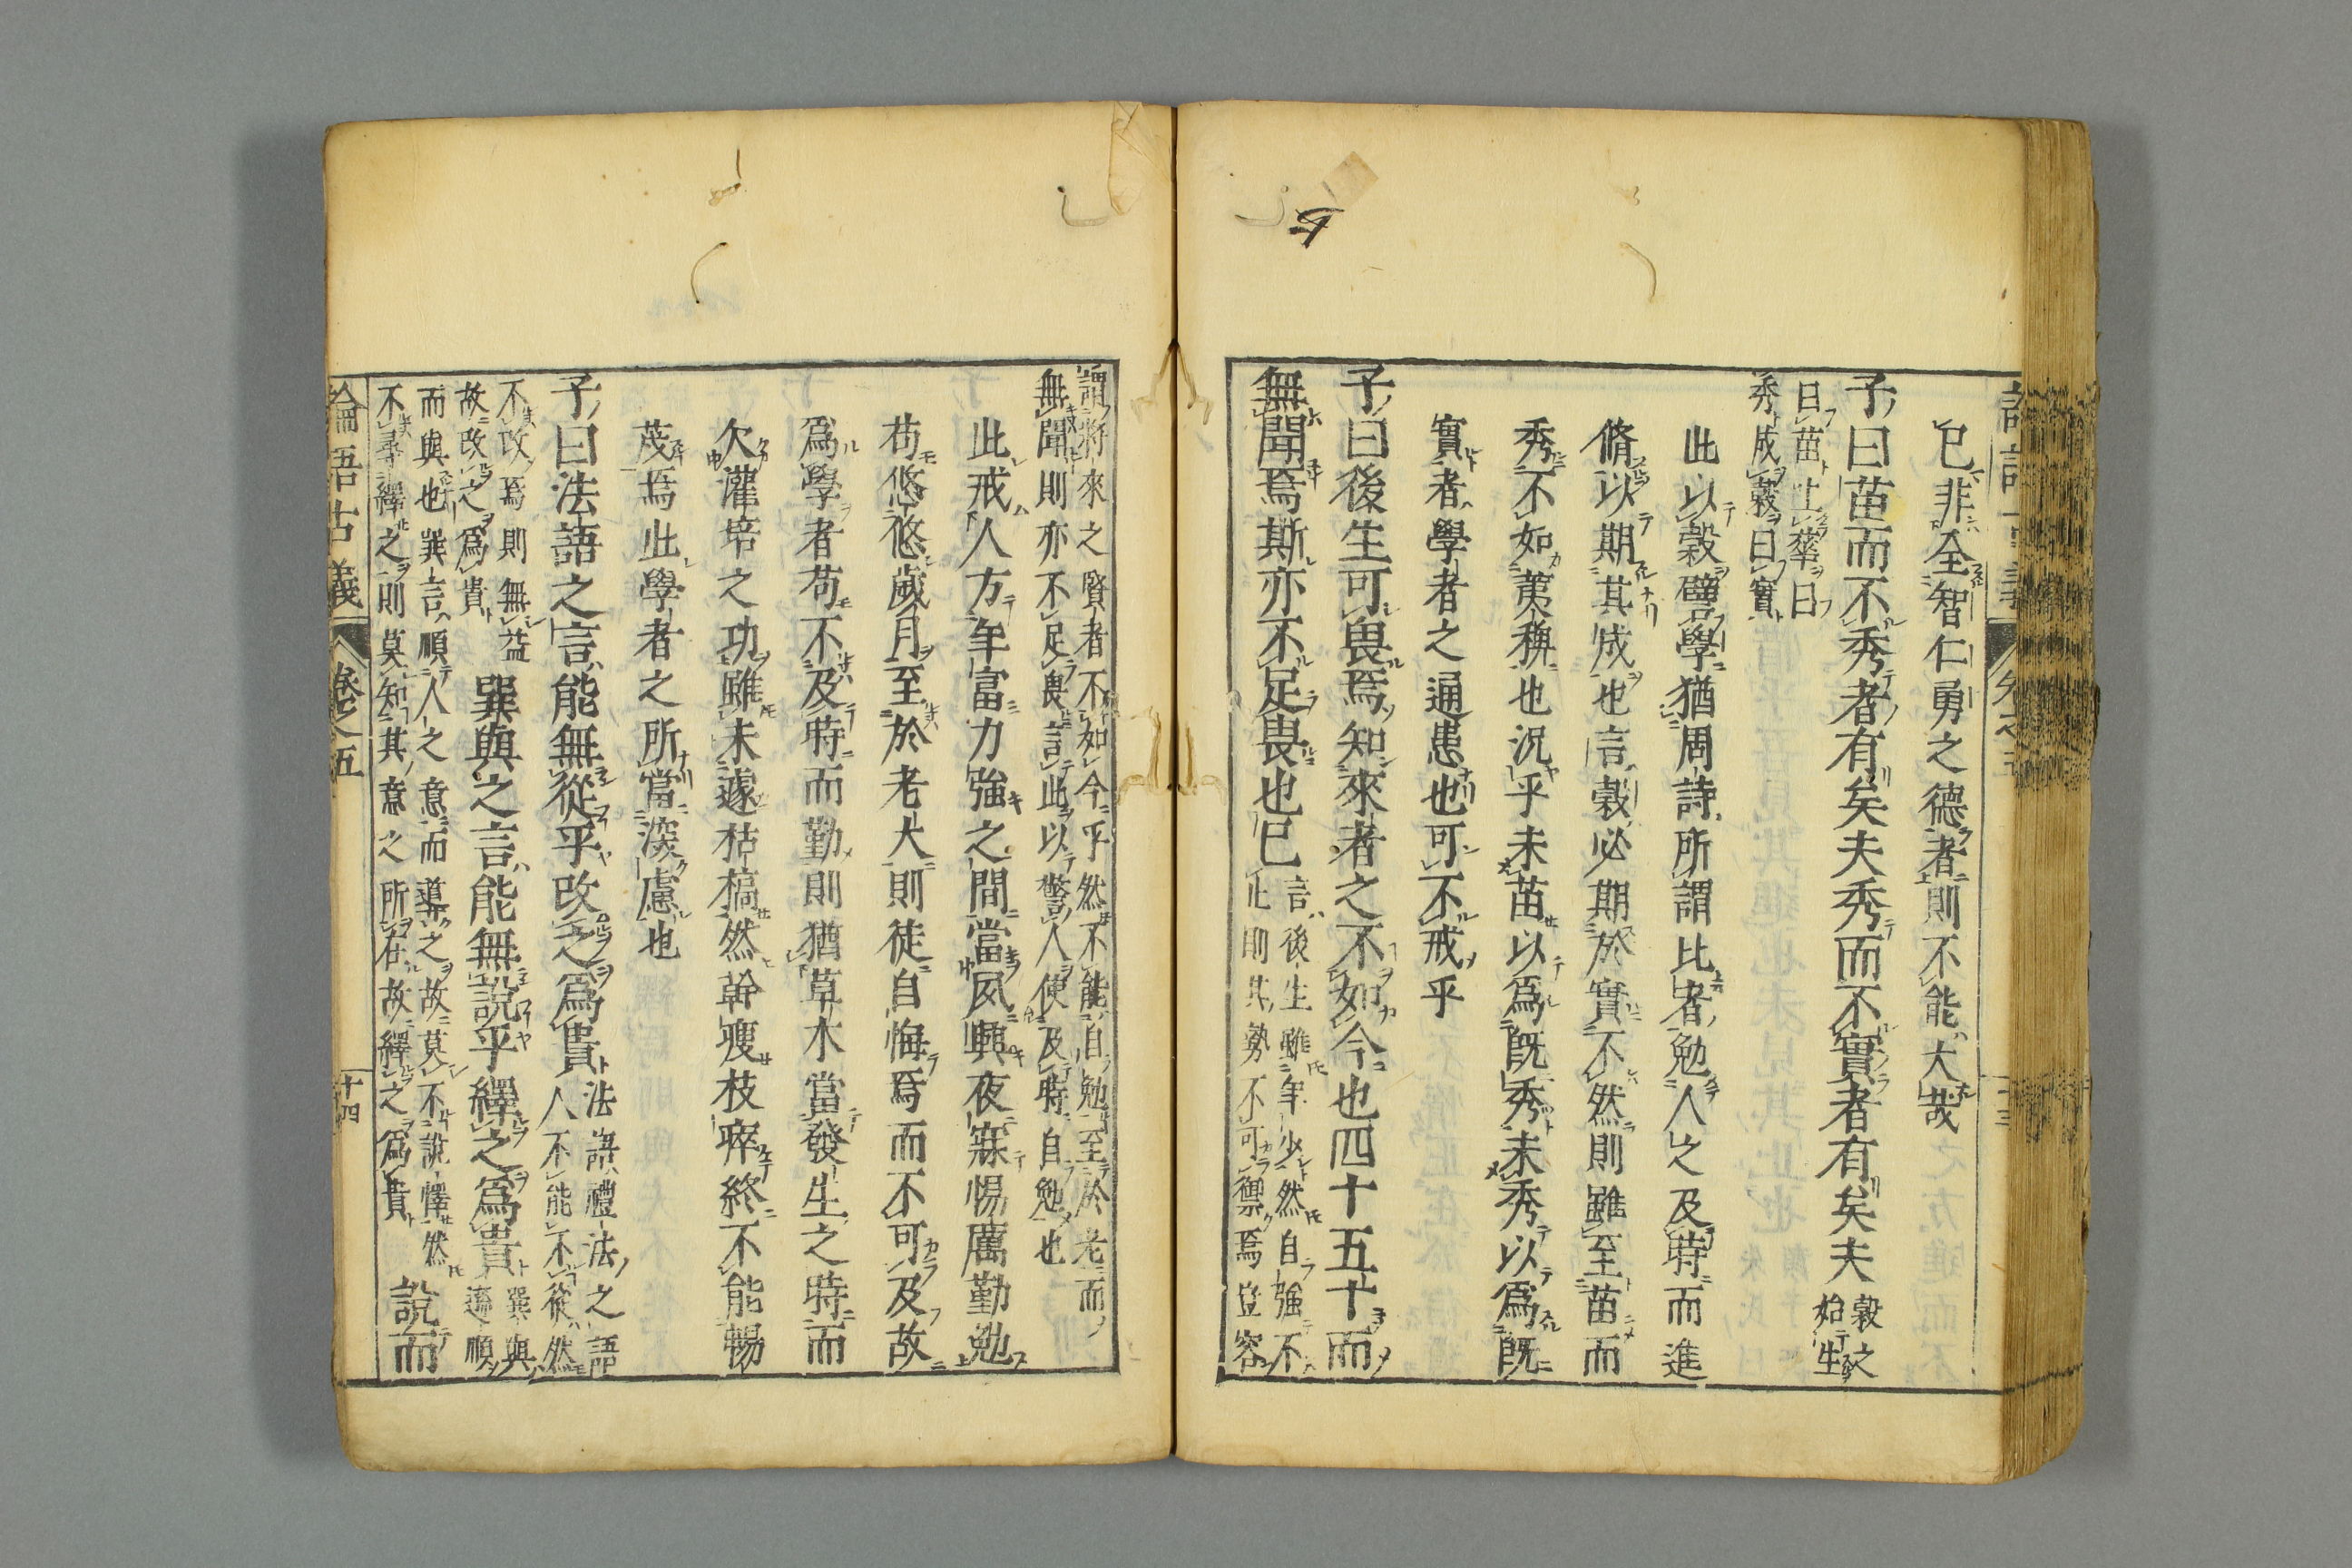 已非全智仁勇之德者則不能大哉
子曰苗而不秀者有矣夫秀而不實者有矣夫
穀之
始生
曰苗吐華曰
秀成穀曰實
此以穀譬學猶周詩所謂比者勉人之及時而進
脩以期其成也言穀必期於實不然則雖至苗而
秀不如荑稗也況乎未苗以爲既秀未秀以爲既
實者學者之通患也可不戒乎
子曰後生可畏焉知來者之不如今也四十五十而
無聞焉斯亦不足畏也已
言後生雖年少然自強不
止則其勢不可禦焉豈容
謂將來之賢者不如今乎然不能自勉至於老而
無聞則亦不足畏言此以警人使及時自勉也
此戒人方年富力強之間當夙興夜寐惕厲勤勉
苟悠悠歲月至於老大則徒自悔焉而不可及故
爲學者苟不及時而勤則猶草木當發生之時而
欠灌培之功雖未遽枯槁然幹瘦枝瘁終不能暢
茂焉此學者之所當深慮也
子曰法語之言能無從乎改之爲貴
法語禮法之語
人不能不從然
不改焉則無益
故改之爲貴
巽與之言能無說乎繹之爲貴
巽與
遜順
而與也巽言順人之意而導之故莫不說懌然
不尋繹之則莫知其意之所在故繹之爲貴
說而
論語古義
卷之五
十四